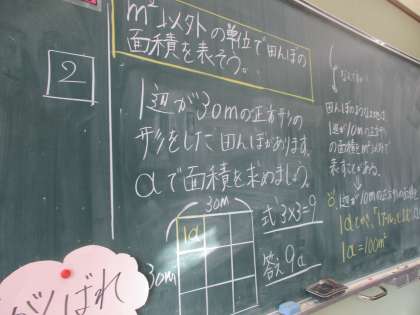 m²以外の単位で田んぼの
面積を表そう。
2
1辺が30mの正方形の
形をした田んぼがあります。
aで面積を求めましょう。
30m
1a
30m
式 3×3=9
答え 9a
田んぼのような土地は、
1辺が10mの正方形
の面積をm²以外で
表すことがある。
1辺が10mの正方形の面積を
1aとかき、「1アール」と
1a=100m²
がんばれ